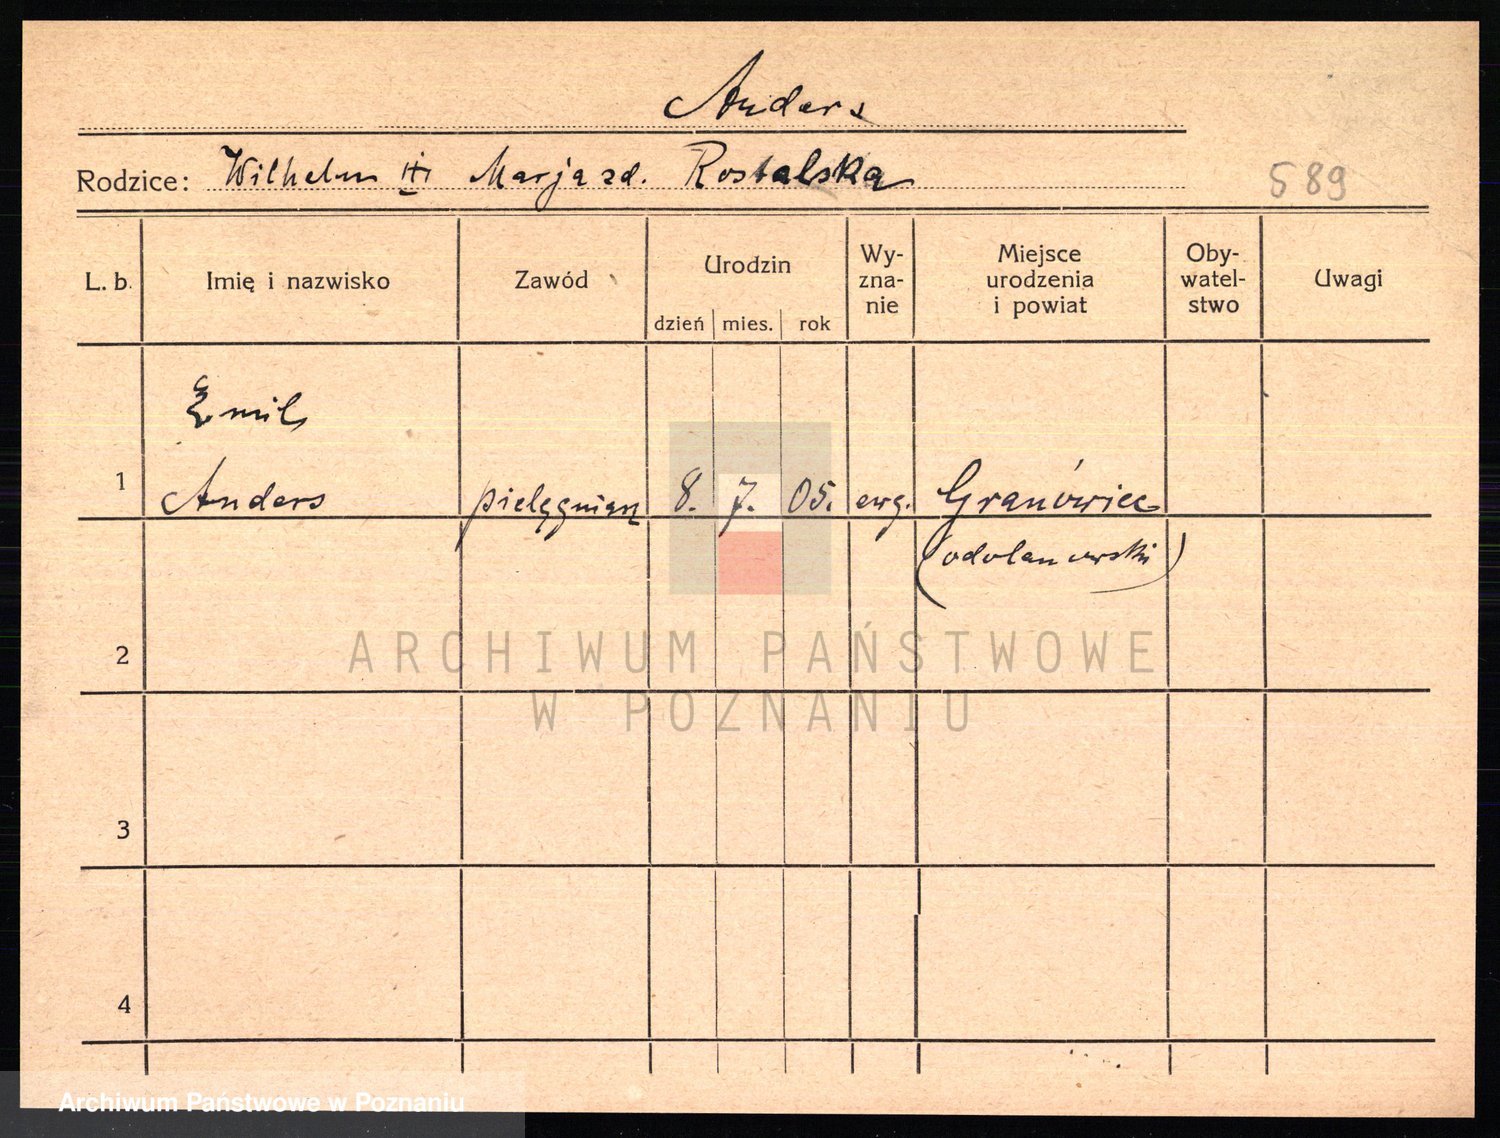 Anders
Rodzice: Wilhelm i Marja zd. Rostalska
589
L. b.
Imię i nazwisko
Zawód
Urodzin
dzień
mies.
rok
Wy-
zna-
nie
Miejsce
urodzenia
i powiat
Oby-
watel-
stwo
Uwagi
Emil
1 Anders pielęgniarz 8. 7. 05. ewg. Granówiec
(odolanowski)
2
3
4
ARCHIWUM PAŃSTWOWE
W POZNANIU
Archiwum Państwowe w Poznaniu